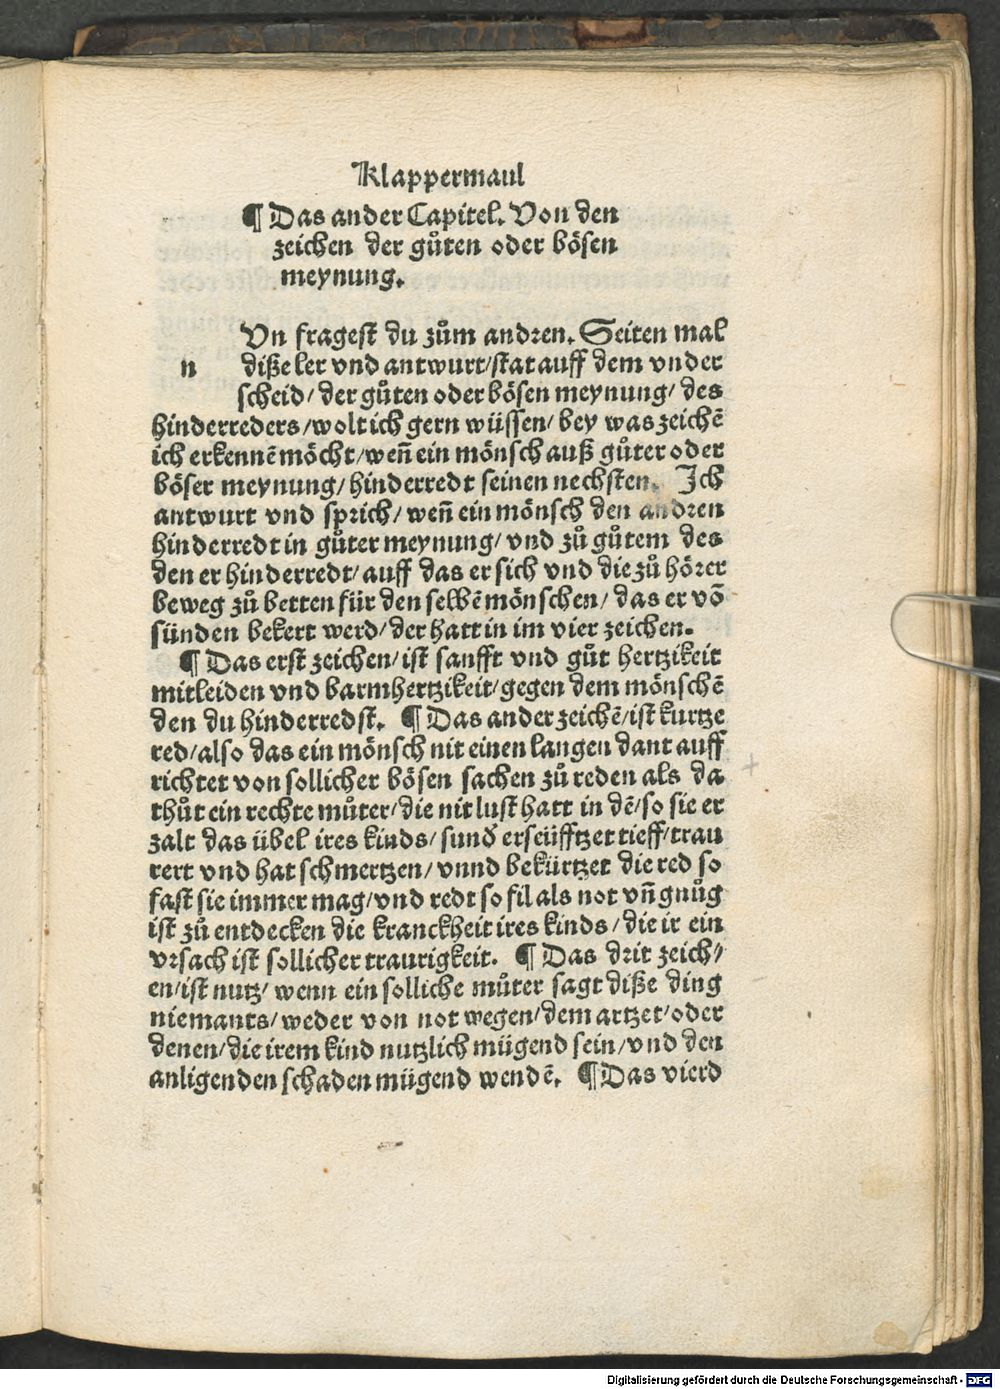 Klappermaul
¶ Das ander Capitel. Von den
zeichen der gůten oder bösen
meynung.
Vn fragest du zům andren. Seiten mal
n diße ler vnd antwurt/stat auff dem vnder
scheid/ der gůten oder bösen meynung/ des
hinderreders/wolt ich gern wüssen/ bey was zeichē
ich erkennē möcht/weñ ein mönsch auß gůter oder
böser meynung/hinderredt seinen nechsten. Ich
antwurt vnd sprich/ weñ ein mönsch den andren
hinderredt in gůter meynung/ vnd zů gůtem des
den er hinderredt/auff das er sich vnd die zů hörer
beweg zů betten für den selbē mönschen/ das er võ
sünden bekert werd/der hatt in im vier zeichen.
¶ Das erst zeichen/ist sanfft vnd gůt hertzikeit
mitleiden vnd barmhertzikeit/gegen dem mönschē
den du hinderredst. ¶ Das ander zeichē/ist kurtze
red/also das ein mönsch nit einen langen dant auff
richtet von sollicher bösen sachen zů reden als da
thůt ein rechte můter/die nit lust hatt in dē/so sie er
zalt das übel ires kinds/ sunđ erseüfftzet tieff/trau
rert vnd hat schmertzen/ vnnd bekürtzet die red so
fast sie immer mag/vnd redt so fil als not vñ gnůg
ist zů entdecken die kranckheit ires kinds/die ir ein
vrsach ist sollicher traurigkeit. ¶ Das drit zeich/
en/ist nutz/ wenn ein solliche můter sagt diße ding
niemants/weder von not wegen/dem artzet/oder
denen/die irem kind nutzlich mügend sein/vnd den
anligenden schaden mügend wendē. ¶ Das vierd
Digitalisierung gefördert durch die Deutsche Forschungsgemeinschaft - DFG